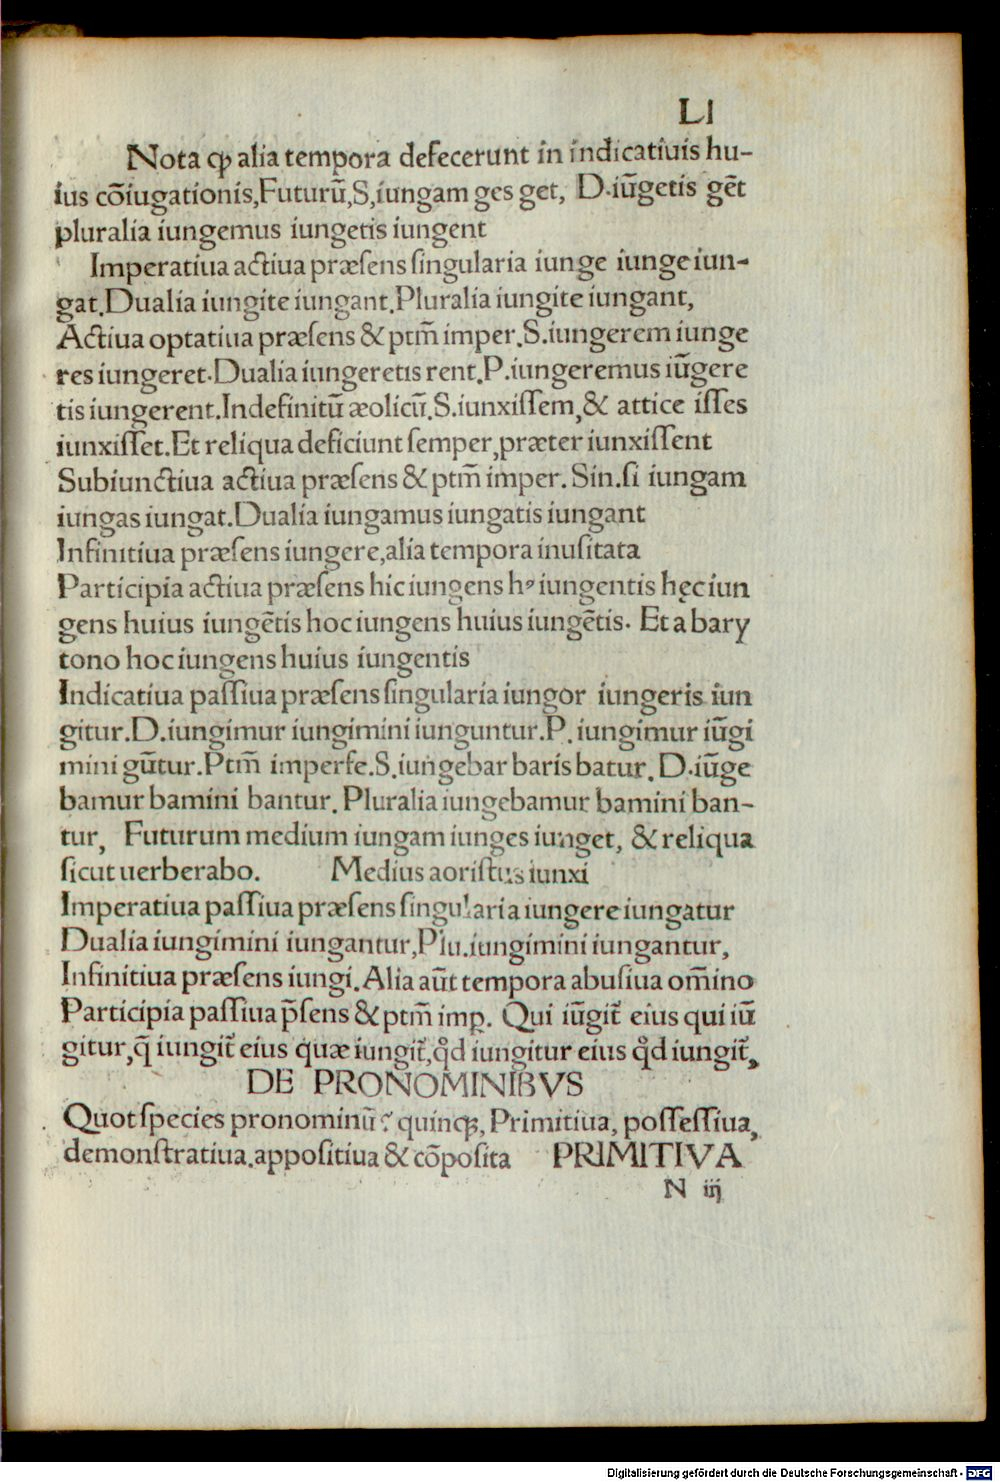 LI
Nota ꝙ alia tempora defecerunt in indicatiuis hu-
ius cōiugationis,Futurū,S,iungam ges get, D.iūgetis gēt
pluralia iungemus iungetis iungent
Imperatiua actiua præsens singularia iunge iunge iun-
gat.Dualia iungite iungant.Pluralia iungite iungant,
Actiua optatiua præsens & ptm̄ imper.S.iungerem iunge
res iungeret.Dualia iungeretis rent.P.iungeremus iūgere
tis iungerent.Indefinitū æolicū.S.iunxissem,& attice isses
iunxisset.Et reliqua deficiunt semper,præter iunxissent
Subiunctiua actiua præsens & ptm̄ imper. Sin.si iungam
iungas iungat.Dualia iungamus iungatis iungant
Infinitiua præsens iungere,alia tempora inusitata
Participia actiua præsens hic iungens hꝰ iungentis hęc iun
gens huius iungētis hoc iungens huius iungētis. Et a bary
tono hoc iungens huius iungentis
Indicatiua passiua præsens singularia iungor iungeris iun
gitur.D.iungimur iungimini iunguntur.P. iungimur iūgi
mini gūtur.Ptm̄ imperfe.S.iungebar baris batur. D.iūge
bamur bamini bantur. Pluralia iungebamur bamini ban-
tur, Futurum medium iungam iunges iunget, & reliqua
sicut uerberabo. Medius aoristus iunxi
Imperatiua passiua præsens singularia iungere iungatur
Dualia iungimini iungantur,Plu.iungimini iungantur,
Infinitiua præsens iungi.Alia aūt tempora abusiua om̄ino
Participia passiua p̄sens & ptm̄ imp. Qui iūgit̄ eius qui iū
gitur,q̄ iungit̄ eius quæ iungit̄,qd̛ iungitur eius qd̛ iungit̄,
DE PRONOMINIBVS
Quot species pronominū? quinqꝫ, Primitiua, possessiua,
demonstratiua.appositiua & cōposita PRIMITIVA
N iij
Digitalisierung gefördert durch die Deutsche Forschungsgemeinschaft - DFG